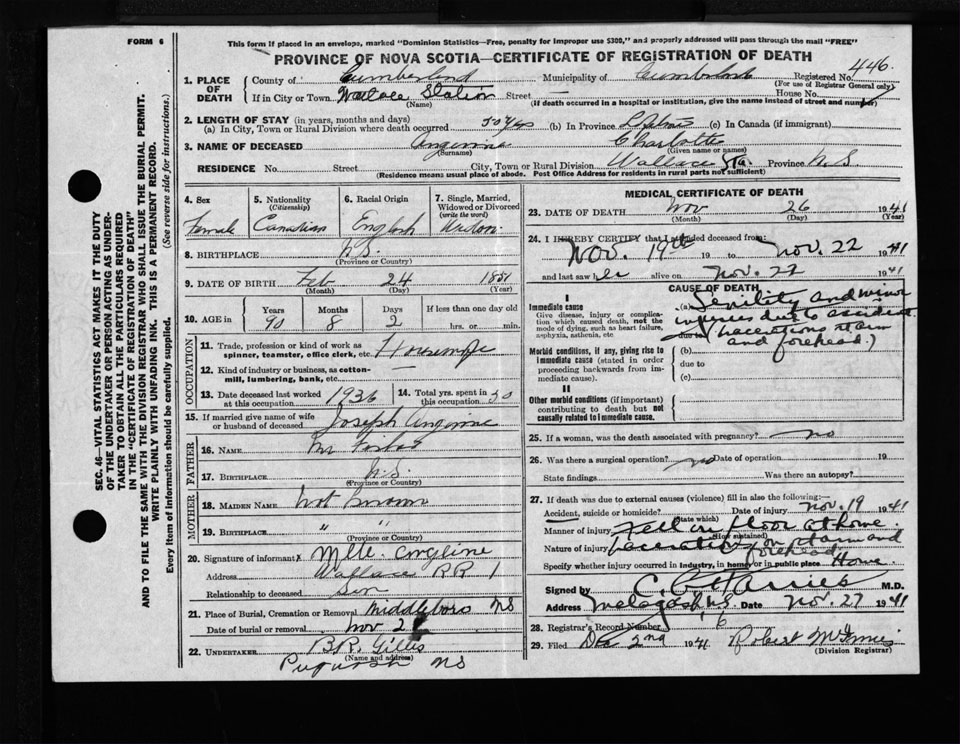 FORM 6
This form if placed in an envelope, marked "Dominion Statistics—Free, penalty for improper use $300," and properly addressed will pass through the mail "FREE"
PROVINCE OF NOVA SCOTIA—CERTIFICATE OF REGISTRATION OF DEATH
1. PLACE OF DEATH County of Cumberland Municipality of Cumberland Registered No. 446
(For use of Registrar General only)
If in City or Town Wallace Station Street — House No.
(Name) (If death occurred in a hospital or institution, give the name instead of street and number)
2. LENGTH OF STAY (in years, months and days)
(a) In City, Town or Rural Division where death occurred 50 yrs (b) In Province (c) In Canada (if immigrant)
3. NAME OF DECEASED Charlotte
(Surname) (Given name or names)
RESIDENCE No. Street City, Town or Rural Division Wallace Sta. Province N.S
(Residence means usual place of abode. Post Office Address for residents in rural parts not sufficient)
4. Sex Female
5. Nationality (Citizenship) Canadian
6. Racial Origin English
7. Single, Married, Widowed or Divorced (write the word) Widow
8. BIRTHPLACE N.S.
(Province or Country)
9. DATE OF BIRTH Feb 24 1851
(Month) (Day) (Year)
10. AGE in Years Months Days If less than one day old
90 8 2 hrs. or min.
OCCUPATION
11. Trade, profession or kind of work as spinner, teamster, office clerk, etc.
12. Kind of industry or business, as cotton-mill, lumbering, bank, etc. —
13. Date deceased last worked at this occupation 1936
14. Total yrs. spent in this occupation 50
15. If married give name of wife or husband of deceased Joseph
FATHER
16. NAME
17. BIRTHPLACE N.S.
(Province or Country)
MOTHER
18. MAIDEN NAME Not Known
19. BIRTHPLACE " "
(Province or Country)
20. Signature of informant X
Address Wallace RR 1
Relationship to deceased Son
21. Place of Burial, Cremation or Removal Middleboro NS
Date of burial or removal Nov 2
22. UNDERTAKER B.R. Gillis
(Name and address)
Pugwash NS
MEDICAL CERTIFICATE OF DEATH
23. DATE OF DEATH Nov 26 1941
(Month) (Day) (Year)
24. I HEREBY CERTIFY that I attended deceased from:
Nov. 19th 19 to Nov. 22 1941
and last saw her alive on Nov. 22 1941
CAUSE OF DEATH
I
Immediate cause (a) Senility and minor
Give disease, injury or complication which caused death, not the mode of dying, such as heart failure, asphyxia, asthenia, etc.
injuries due to accident
due to (lacerations rt arm
and forehead.)
Morbid conditions, if any, giving rise to immediate cause (stated in order proceeding backwards from immediate cause).
(b)
due to
(c)
II
Other morbid conditions (if important) contributing to death but not causally related to immediate cause.
25. If a woman, was the death associated with pregnancy? no
26. Was there a surgical operation? no Date of operation 19
State findings Was there an autopsy?
27. If death was due to external causes (violence) fill in also the following:—
Accident, suicide or homicide? Date of injury Nov. 19 1941
(State which)
Manner of injury Fell on floor at home
(How sustained)
Nature of injury Laceration on rt arm and
forehead
Specify whether injury occurred in industry, in home, or in public place Home
Signed by C. G. Harries M.D.
Address Malagash N.S. Date Nov. 27 1941
28. Registrar's Record Number 6
29. Filed Dec 2nd 1941 Robert McInnis
(Division Registrar)
SEC. 46—VITAL STATISTICS ACT MAKES IT THE DUTY OF THE UNDERTAKER OR PERSON ACTING AS UNDERTAKER TO OBTAIN ALL THE PARTICULARS REQUIRED IN THE "CERTIFICATE OF REGISTRATION OF DEATH" AND TO FILE THE SAME WITH THE DIVISION REGISTRAR WHO SHALL ISSUE THE BURIAL PERMIT.
WRITE PLAINLY WITH UNFADING INK. THIS IS A PERMANENT RECORD.
Every item of information should be carefully supplied. (See reverse side for instructions.)